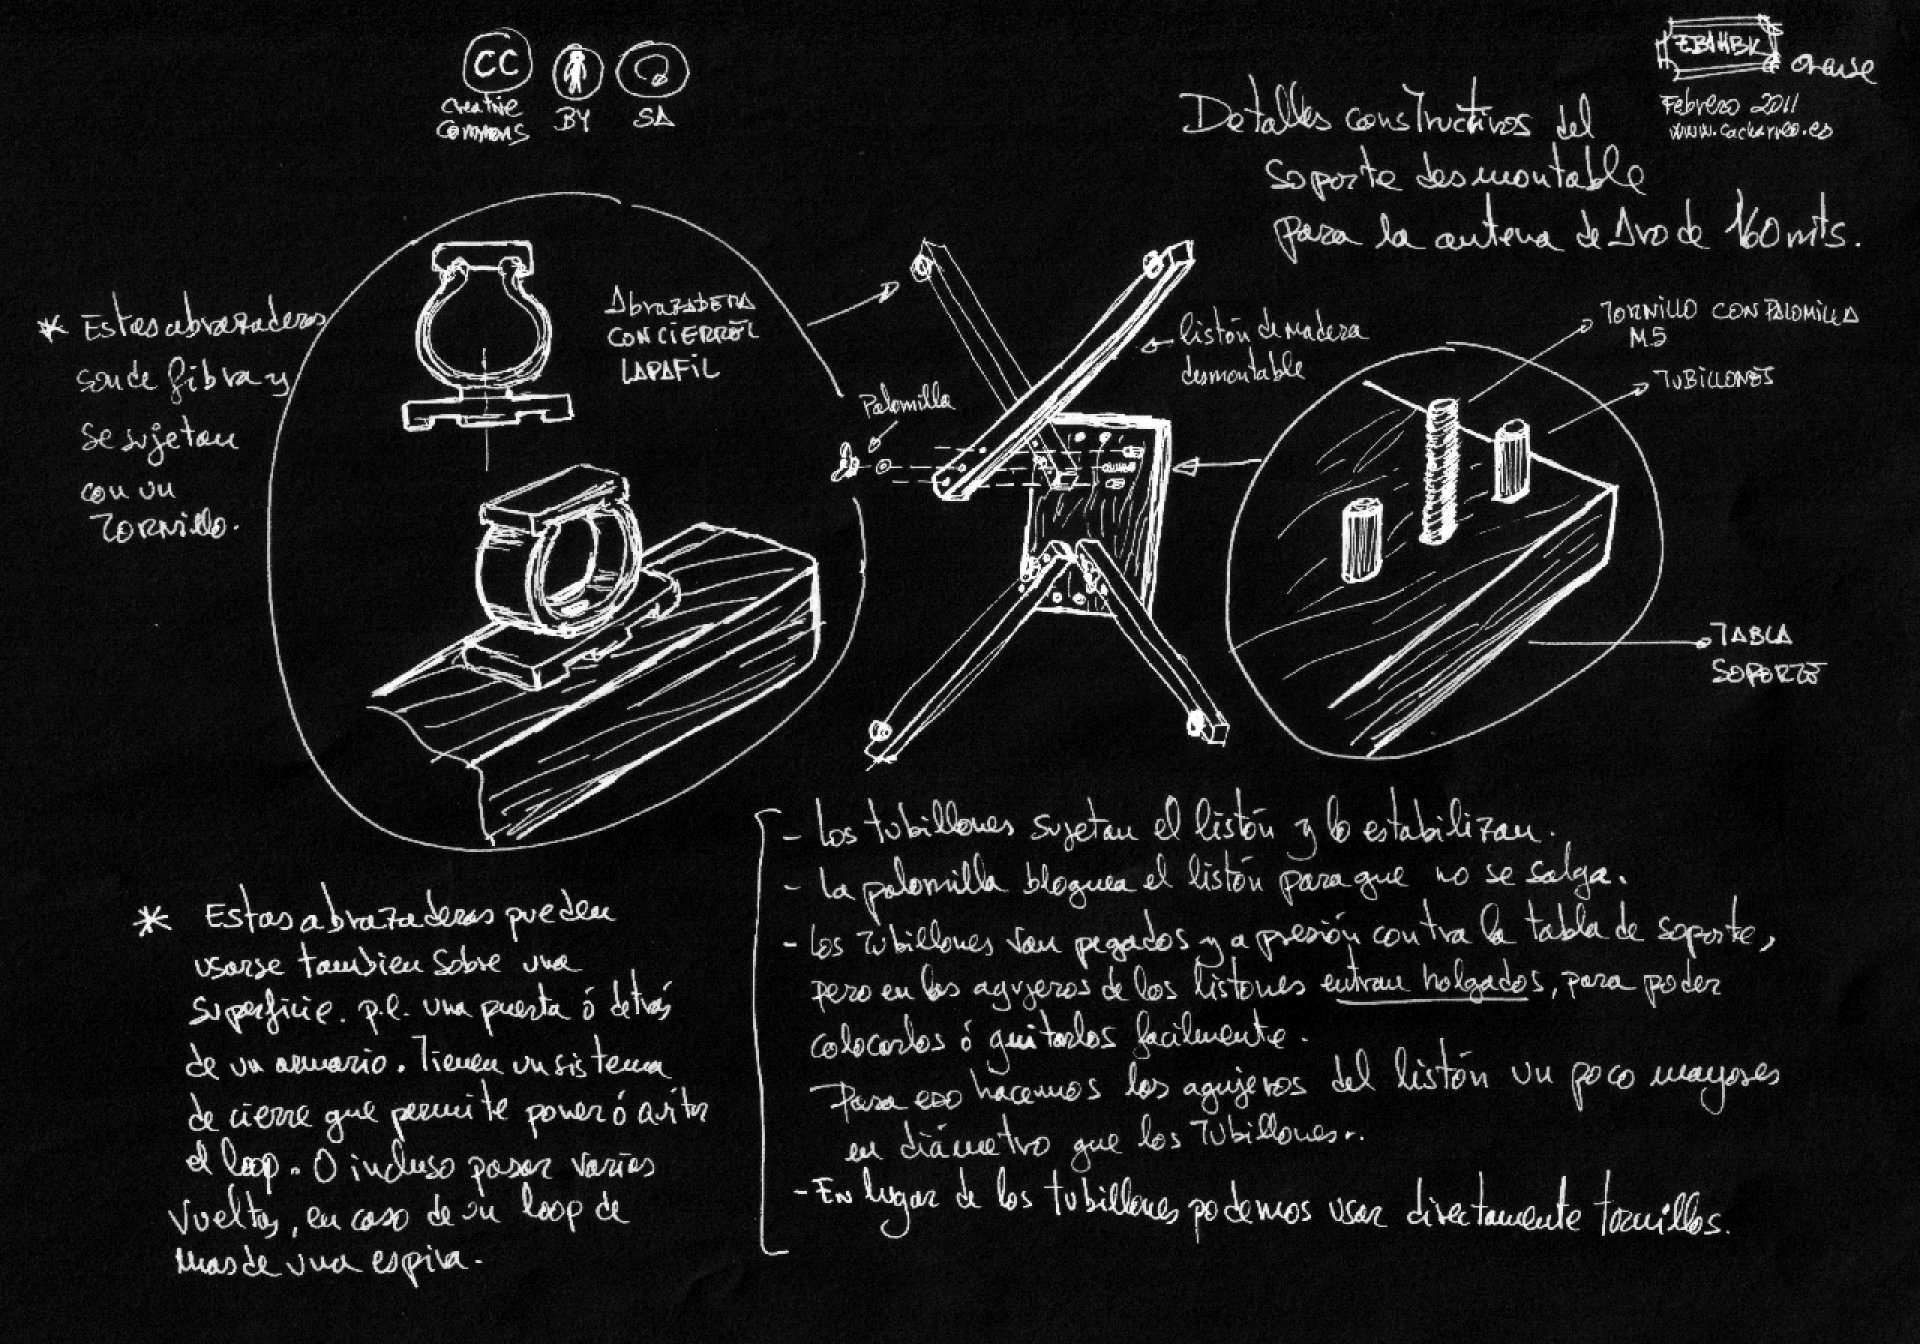 CC
Creative
Commons
BY
SA
EB1HBK
orense
Febrero 2011
www.cacharreo.es
Detalles constructivos del
soporte desmontable
para la antena de Aro de 160 mts.
* Estas abrazaderas
son de fibra y
se sujetan
con un
Tornillo.
Abrazadera
con cierre
LAPAFIL
Palomilla
listón de madera
desmontable
Tornillo con palomilla
M5
Tubillones
Tabla
soporte
* Estas abrazaderas pueden
usarse tambien sobre una
superficie. p.e. una puerta ó detrás
de un armario. Tienen un sistema
de cierre que permite poner ó quitar
el loop. O incluso pasar varias
vueltas, en caso de un loop de
mas de una espira.
- Los tubillones sujetan el listón y lo estabilizan.
- La palomilla bloquea el listón para que no se salga.
- Los Tubillones van pegados y a presión contra la tabla de soporte,
pero en los agujeros de los listones entran holgados, para poder
colocarlos ó quitarlos facilmente.
Para eso hacemos los agujeros del listón un poco mayores
en diámetro que los Tubillones..
- En lugar de los tubillones podemos usar directamente tornillos.